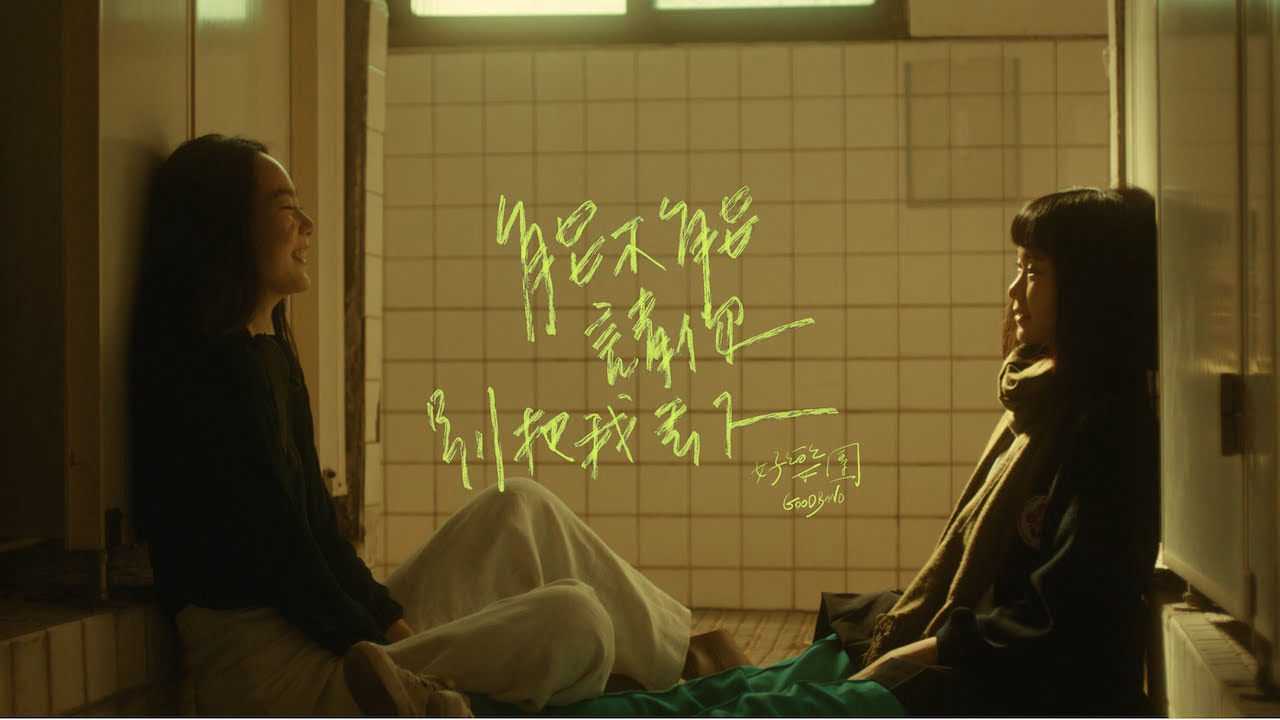 能不能
請你
別把我丟下
好樂團
GOODBAND